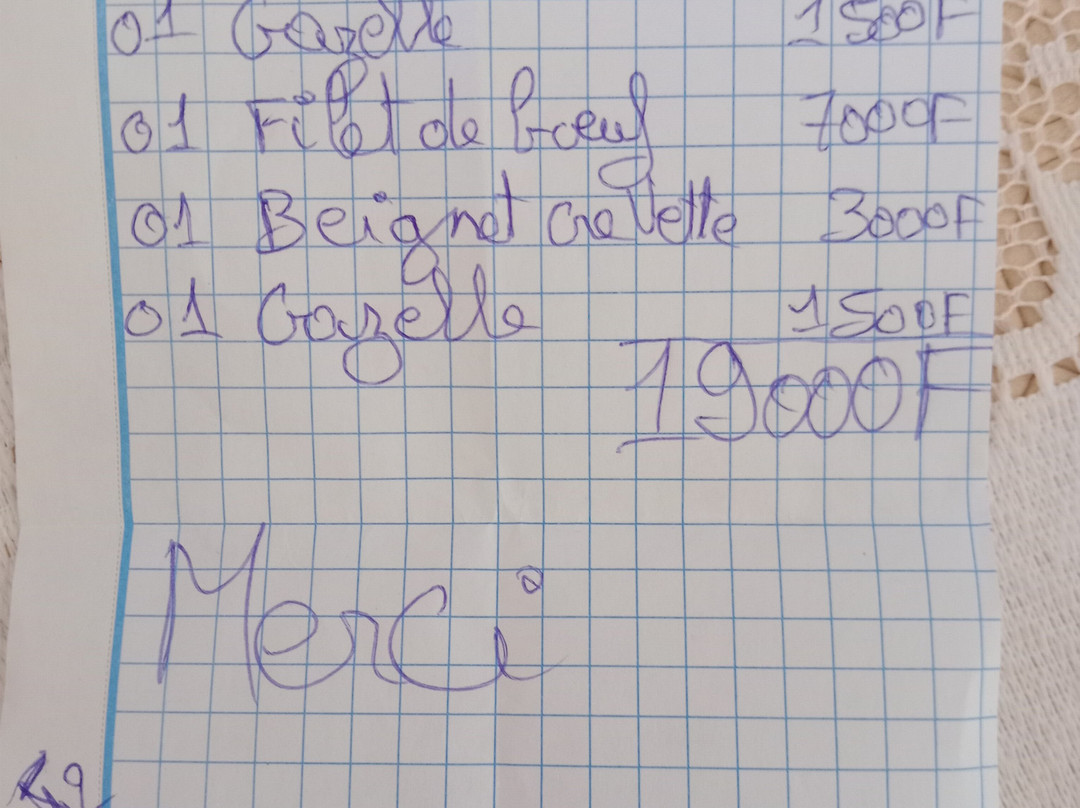 01 Gazelle 1500F
01 Filet de boeuf 7000F
01 Beignet crevette 3000F
01 Gazelle 1500F
19000F
Merci